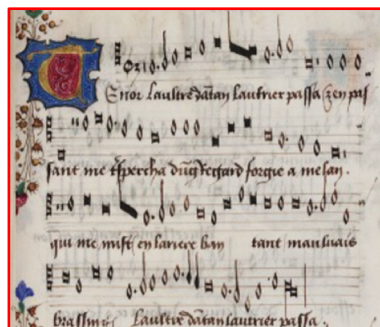 Enor laultre dantan lautrier passa & en pas
sant me tspercha dung regard forgie a melan.
qui me mist en larriere ban tant mauluais
brassin Laultre dantan lautrier passa.